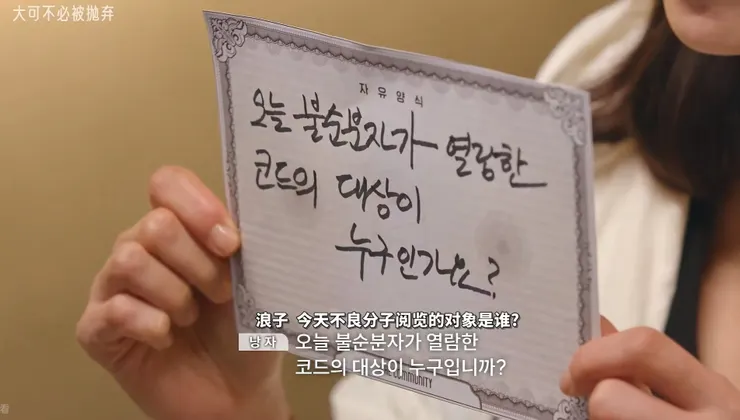 大可不必被抛弃
자유양식
오늘 불순분자가 열람한
코드의 대상이
누구인가요?
浪子 今天不良分子阅览的对象是谁?
낭자 오늘 불순분자가 열람한
코드의 대상이 누구입니까?
COMMUNITY
看